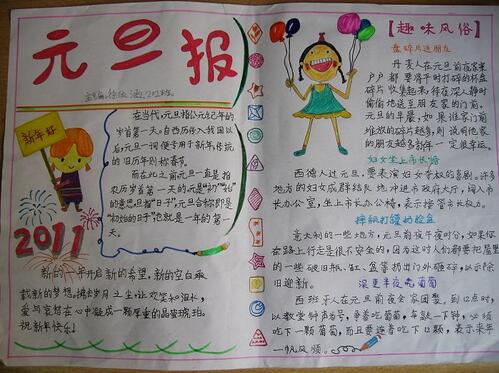 元旦报
新年好
2011
在当代,元旦指公元纪年的
岁首第一天。自西历传入我国以
后,元旦一词便专用于新年,传统
的旧历年则称春节。
而在此之前,元旦一直是指
农历岁首第一天的。元是"初""始"
的意思,旦指"日子",元旦合称即是
"初始的日子",也就是一年的第一
天。
新的一年开启新的希望,新的空白承
载新的梦想。拂去岁月之尘,让欢笑和泪水,
爱与哀愁在心中凝成一颗厚重的晶莹琥珀。
祝新年快乐!
【趣味风俗】
盘碎片送朋友
丹麦人在元旦前夜,家家
户户都要将平时打碎的杯盘
碎片收集起来,待夜深人静时
偷偷地送至朋友家的门前。
元旦的早晨,如果谁家门前
堆放的碎片越多,则说明他家
的朋友越多,新年一定很幸运。
妇女坐上市长椅
西德人过元旦,要表演妇女夺权的喜剧。许多
地方的妇女成群结队地冲进市政府大厅,闯入市
长办公室,坐上市长办公椅,表示接管市长权力。
摔瓶打罐
意大利的一些地方,元旦前夜午夜时分,如果你
在路上行走是很不安全的,因为这时人们都要把屋里
的一些破旧瓶、缸、盆等扔出门外砸碎,以示除
旧迎新。
深更半夜吃葡萄
西班牙人在元旦前夜全家团聚,到12点时,
以教堂钟声为号,争着吃葡萄,每敲一下钟,必须
吃下一颗葡萄,而且要连着吃下12颗,表示来年
一帆风顺。